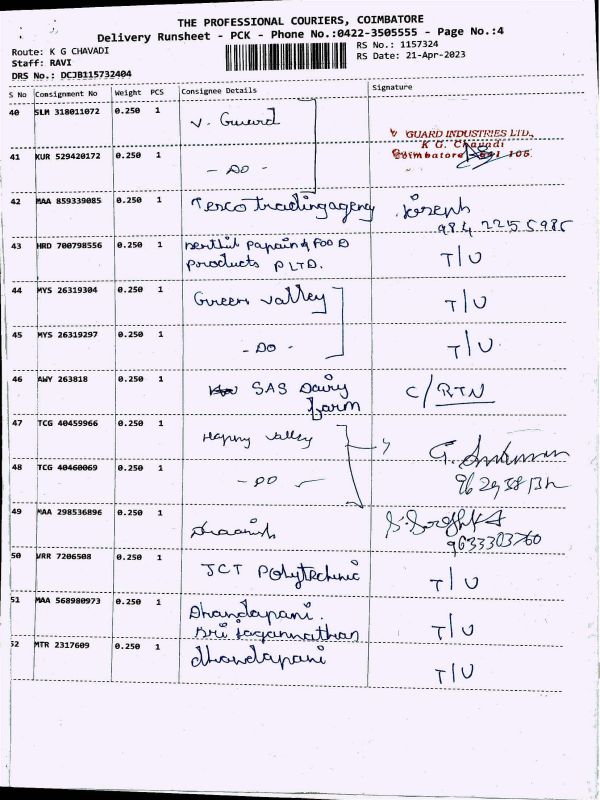 THE PROFESSIONAL COURIERS, COIMBATORE
Delivery Runsheet - PCK - Phone No.:0422-3505555 - Page No.:4
Route: K G CHAVADI
RS No.: 1157324
Staff: RAVI
RS Date: 21-Apr-2023
DRS No.: DCJB115732404
S No Consignment No Weight PCS Consignee Details Signature
40 SLM 318011072 0.250 1 V. Guard
V GUARD INDUSTRIES LTD.,
K G. Chavadi
Coimbatore - 641 105.
41 KUR 529420172 0.250 1 - DO -
42 MAA 859339085 0.250 1 Tesco tradingagency Joseph
984 225 5985
43 HRD 700798556 0.250 1 Senthil Papain & Food
Products P LTD. T/U
44 MYS 26319304 0.250 1 Green valley T/U
45 MYS 26319297 0.250 1 - DO - T/U
46 AWY 263818 0.250 1 SAS Dairy
farm C/RTN
47 TCG 40459966 0.250 1 Happy valley
48 TCG 40460069 0.250 1 - DO -
49 MAA 298536896 0.250 1
9633303760
50 VRR 7206508 0.250 1 JCT Polytechnic T/U
51 MAA 568980973 0.250 1 Dhandapani.
Sri Jagannathan T/U
52 MTR 2317609 0.250 1 dhandapani T/U